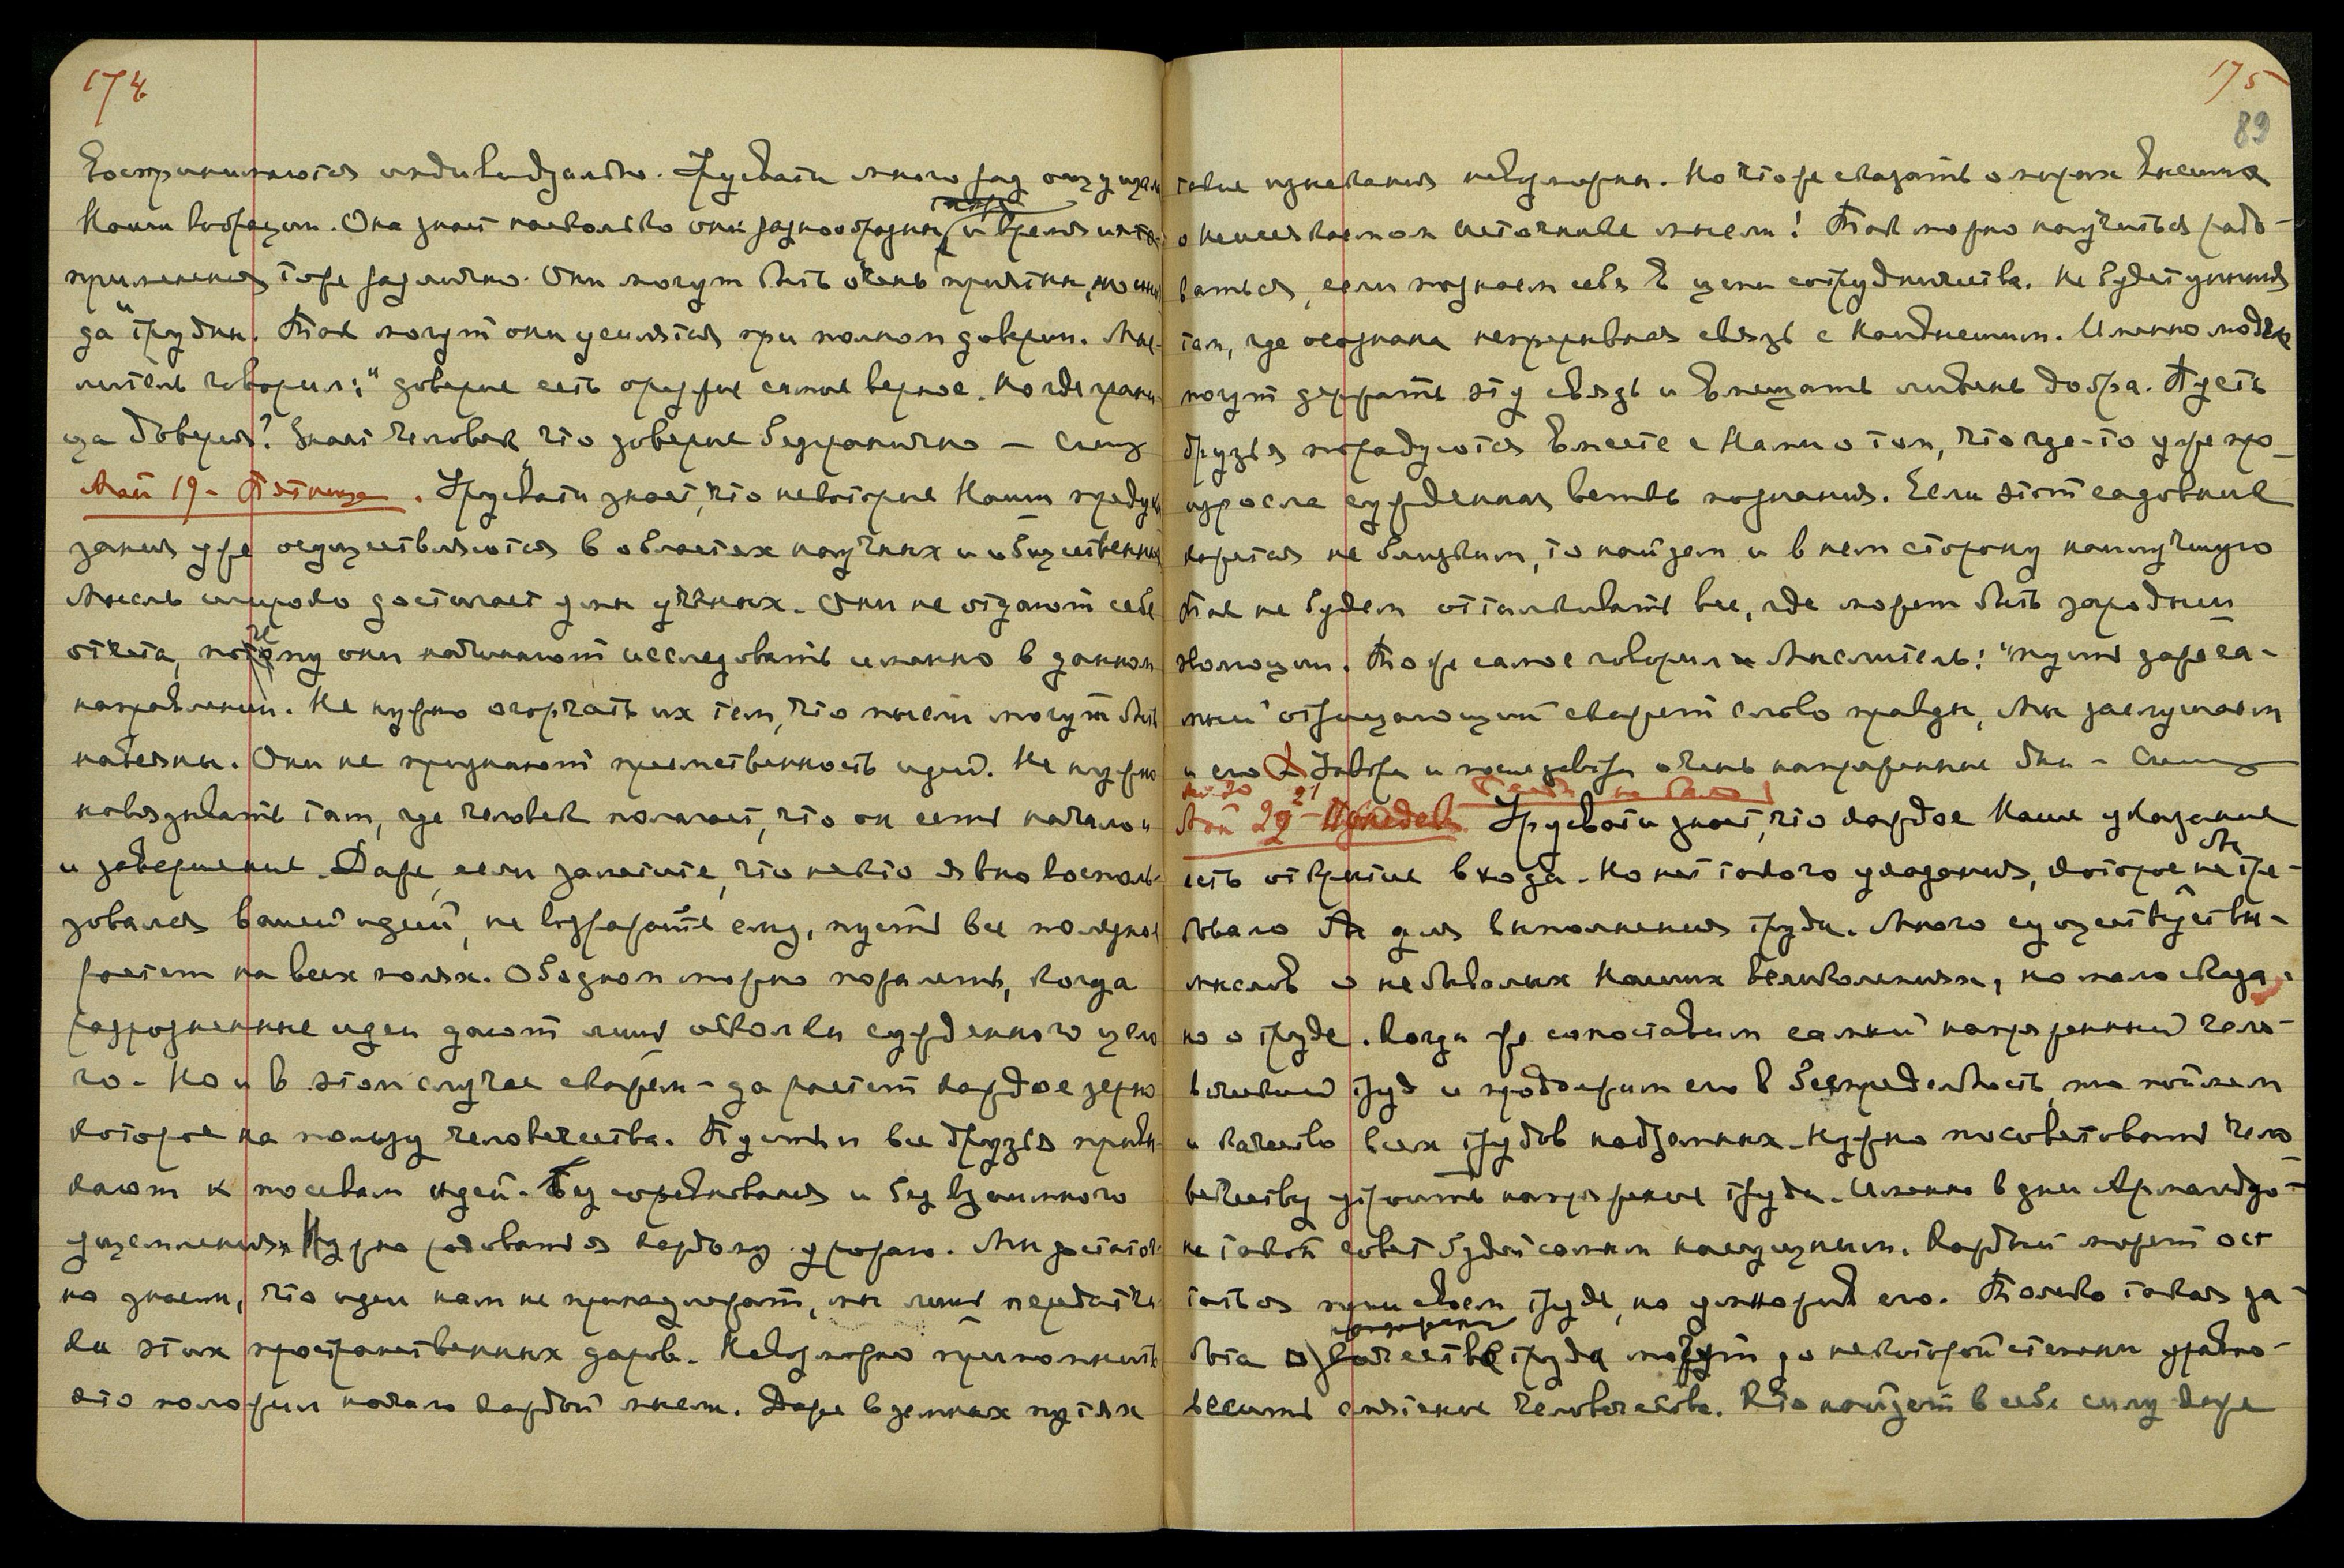 174
воспринимаются индивидуально. Урусвати много раз ощущала
Наши вибрации. Она знает насколько они разнообразны, и время их
применения тоже различно. Они могут быть очень приятны, но иног-
да и трудны. Так могут они усилиться при полном доверии. Мыс-
литель говорил: "доверие есть оружие самое верное. Но где грани-
ца доверия? Знает человек, что доверие безгранично —
Май 19 - Пятница. Урусвати знает, что некоторые Наши предука-
зания уже осуществляются в областях научных и общественных
Мысль широко достигает умы учёных. Они не отдают себе
отчета, почему они начинают исследовать именно в данном
направлении. Не нужно огорчать их тем, что мысли могут быть
навеяны. Они не признают преемственность идей. Не нужно
навязывать там, где человек полагает, что он есть начало
и завершение. Даже, если заметите, что некто явно восполь-
зовался вашей идеей, не возражайте ему, пусть все полезное
растет на всех полях. Об одном можно пожалеть, когда
разрозненные идеи дают лишь осколки сужденного цело
го. Но и в этом случае скажем - да растет каждое зерно
которое на пользу человечества. Пусть и все друзья привы-
кают к посевам идей. Без соревнования и без взаимного
ущемления. Нужно радоваться каждому урожаю. Мы достаточ-
но знаем, что идеи нам не принадлежат, мы лишь передатчи-
ки этих пространственных даров. Невозможно припомнить
кто положил начало каждой мысли. Даже в земных путях
175
89
такие изыскания невозможны. Но что же сказать о мирах высших
о неиссякаемом источнике мысли! Так можно научиться радо-
ваться, если познаем себя в цепи сотрудничества. Не будет уныния
там, где осознана непрерывная связь с Наивысшим. Именно люди
могут держать эту связь и вмещать ливень добра. Пусть
друзья порадуются вместе с Нами о том, что где-то уже про-
изросла сужденная ветвь познания. Если этот садовник
кажется не близким, то найдем и в нем сторону наилучшую
Так не будем отталкивать все, где может быть зародыш
эволюции. То же самое говорил и Мыслитель: "пусть даже са-
мый отрицающий скажет слово правды, Мы заслушаем
и его завтра и послезавтра очень напряженные дни -
Май 21 Урусвати знает, что каждое Наше указание
есть открытие входа. Но нет такого указания, которое не тре-
бовало бы для выполнения труда. Много существует вы-
мыслов о небывалых Наших великолепиях, но мало сказа-
но о труде. Когда же сопоставим самый напряженный чело-
веческий труд и продолжим его в беспредельность, то поймем
и качество всех трудов надземных. Нужно посоветовать чело-
вечеству утроить напряжение труда. Именно в дни Армагеддо-
на такой совет будет самым насущным. Каждый может ос
таться при своем труде, но умножив его. Только такая за-
бота о качестве труда может до некоторой степени уравно-
весить смятение человечества. Кто найдет в себе силу даже